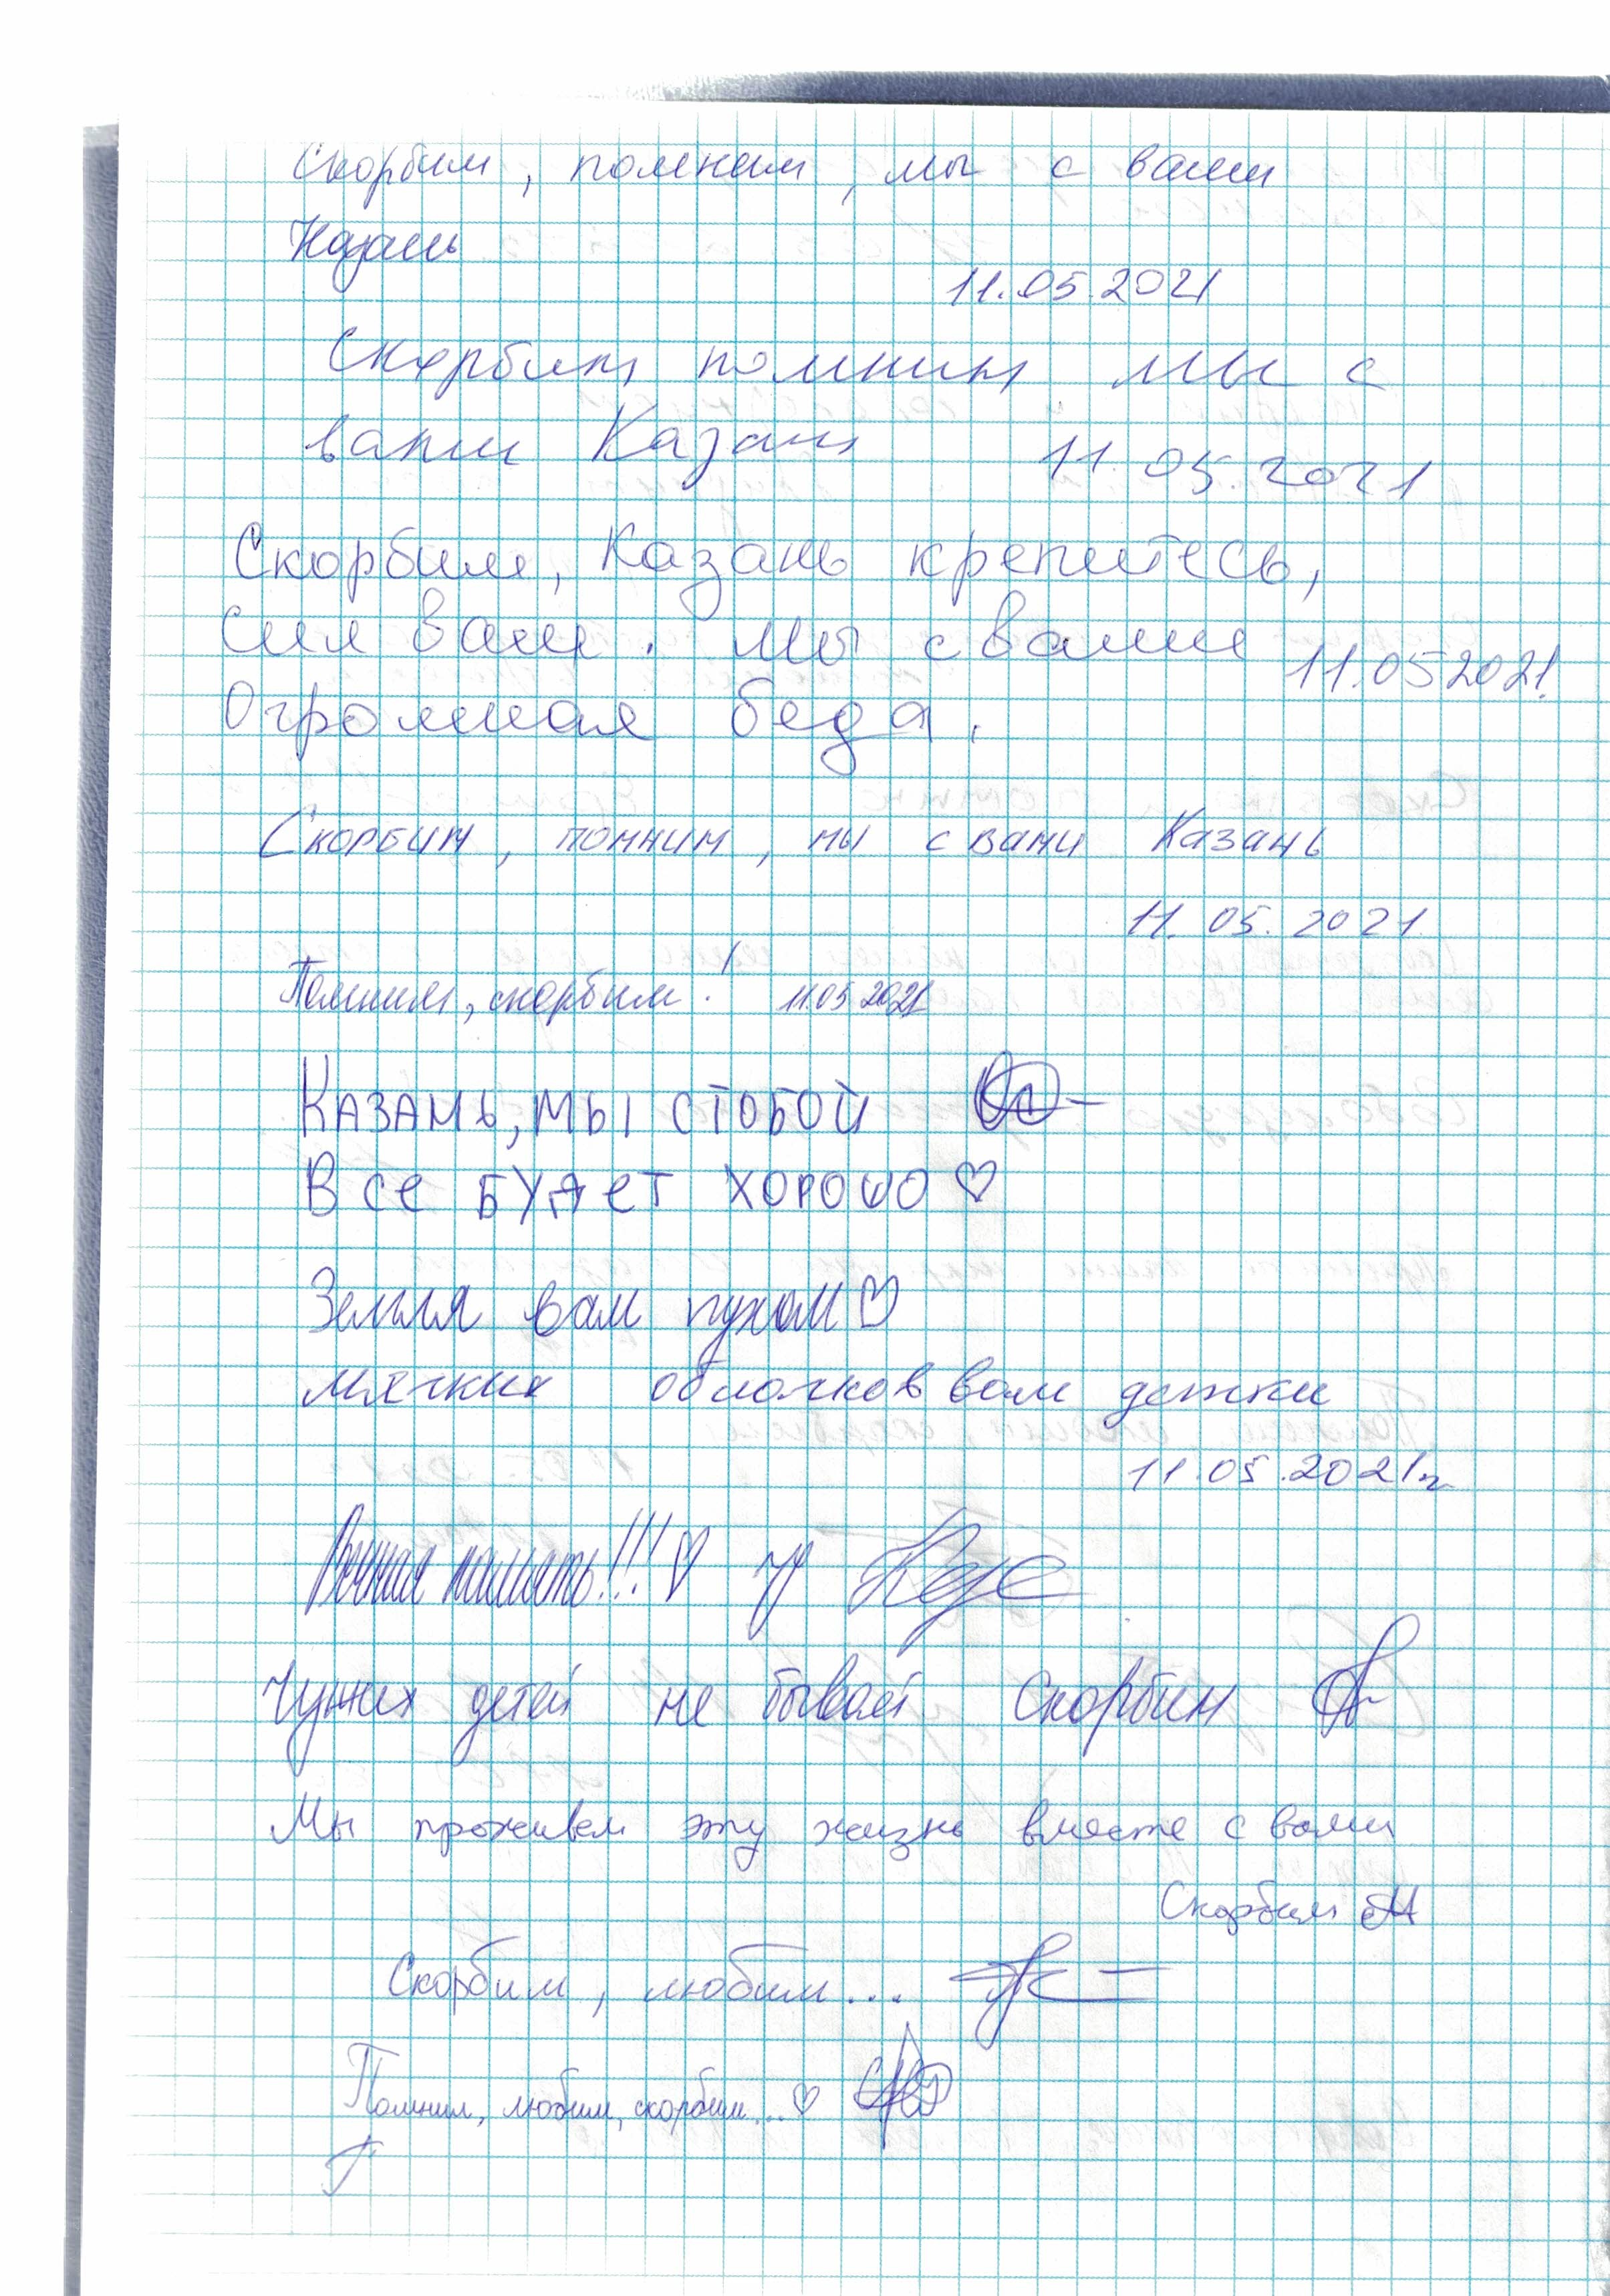 Скорбим, помним, мы с вами
Казань
11.05.2021
Скорбим помним мы с
вами Казань 11.05.2021
Скорбим, Казань крепитесь,
Сил вам. Мы с вами 11.05 2021.
Огромная беда.
Скорбим, помним, мы с вами Казань
11.05.2021
Помним, скорбим! 11.05 2021
КАЗАНЬ, МЫ С ТОБОЙ
ВСЕ БУДЕТ ХОРОШО ♡
Земля вам пухом ♡
Мягких облачков вам детки
11.05.2021г
Вечная память!!! ♡
Чужих детей не бывает Скорбим
Мы проживем эту жизнь вместе с вами
Скорбим
Скорбим, любим...
Помним, любим, скорбим... ♡